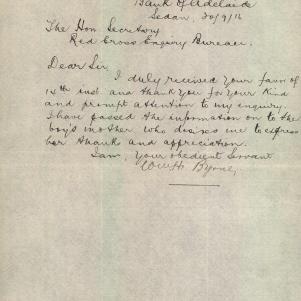 Bank of Adelaide
Sedan, 20/9/16
The Hon Secretary
Red Cross Enquiry Bureau.
Dear Sir,
I duly received your favor of
15th inst. and thank you for your kind
and prompt attention to my enquiry.
I have passed the information on to the
boy's mother who desires me to express
her thanks and appreciation.
I am, Your obedient Servant
Byrne,